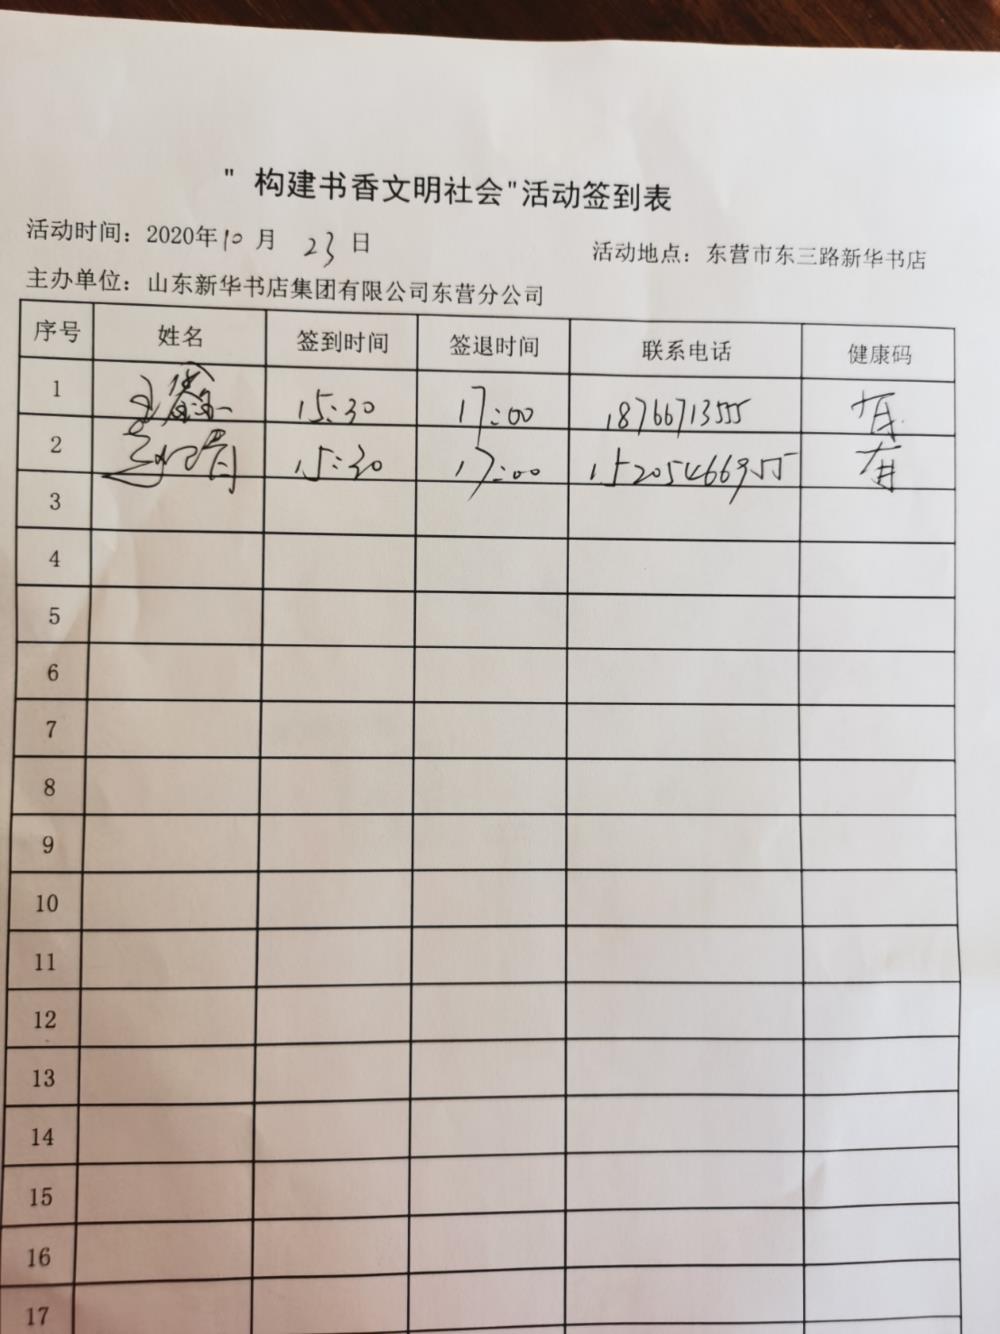 " 构建书香文明社会"活动签到表
活动时间：2020年10月 23日 活动地点：东营市东三路新华书店
主办单位：山东新华书店集团有限公司东营分公司
序号 姓名 签到时间 签退时间 联系电话 健康码
1 15:30 17:00 18766713555 有
2 15:30 17:00 15205466955 有
3
4
5
6
7
8
9
10
11
12
13
14
15
16
17